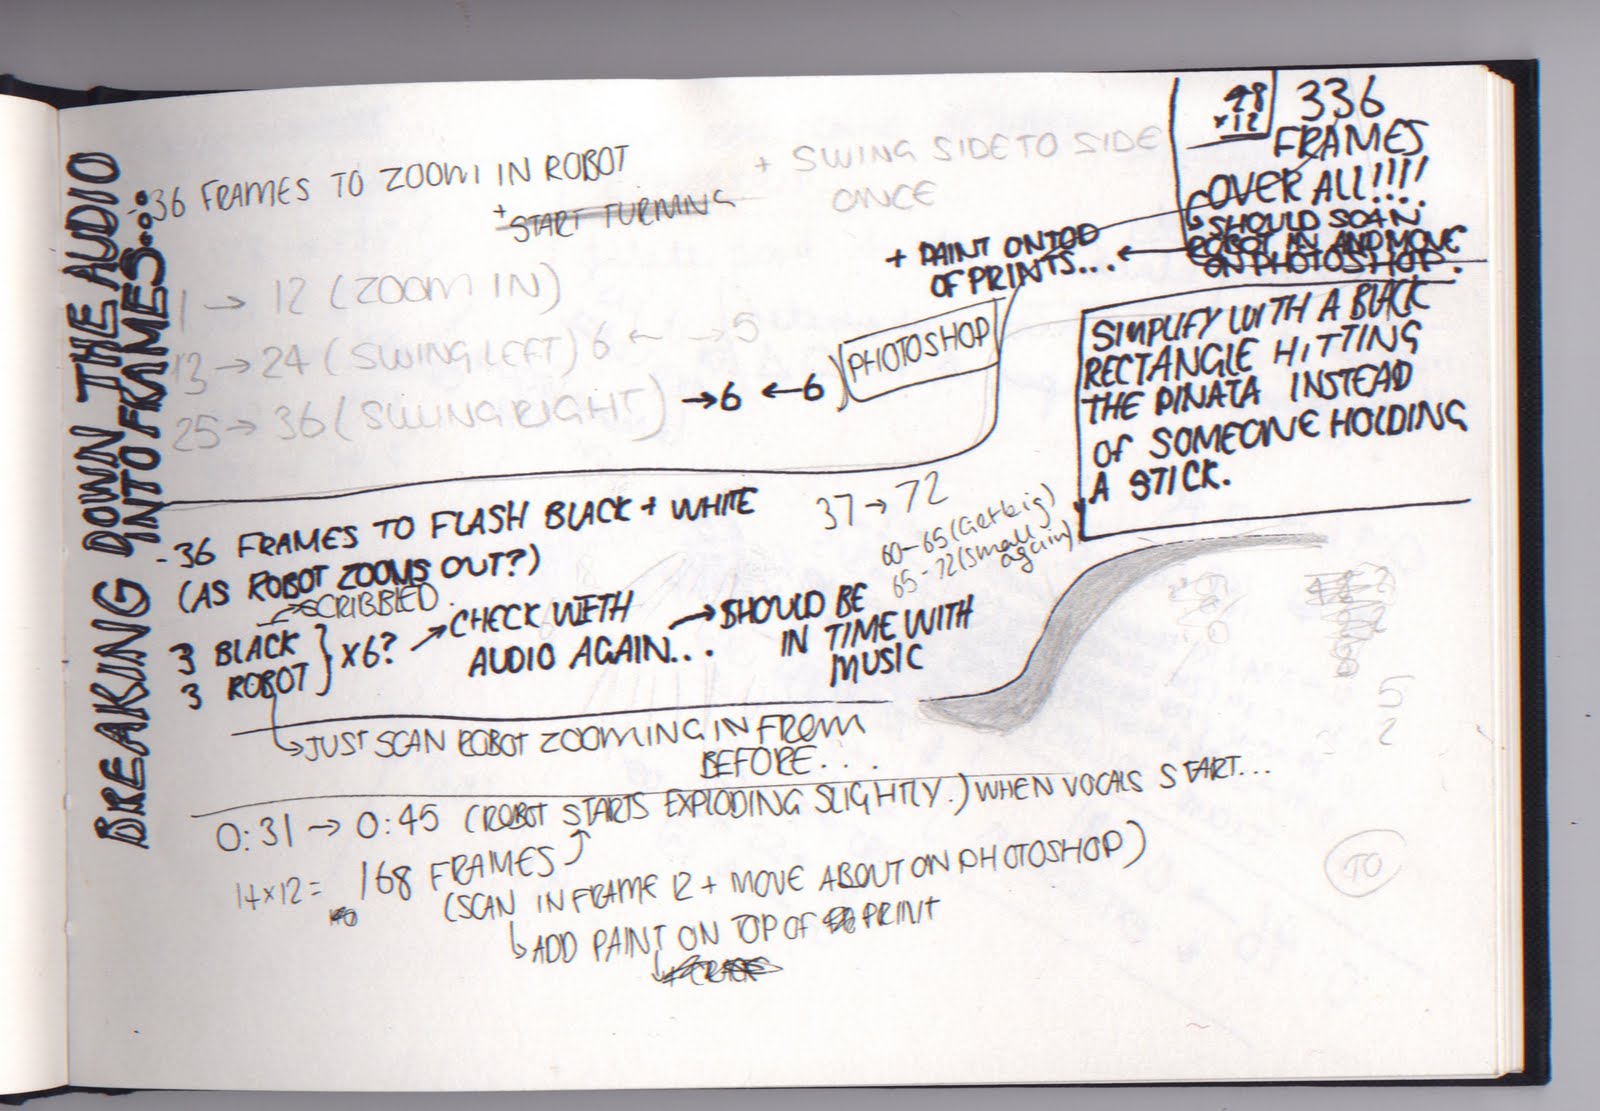 BREAKING DOWN THE AUDIO
INTO FRAMES...
-36 FRAMES TO ZOOM IN ROBOT
+ START TURNING
+ SWING SIDE TO SIDE
ONCE
1 → 12 (ZOOM IN)
13 → 24 (SWING LEFT) 6 ← → 5
25 → 36 (SWING RIGHT) → 6 ← 6
PHOTOSHOP
28
x12
336
FRAMES
OVER ALL!!!!
↳ SHOULD SCAN
ROBOT IN AND MOVE
ON PHOTOSHOP.
+ PAINT ONTOP ←
OF PRINTS...
SIMPLIFY WITH A BLACK
RECTANGLE HITTING
THE PINATA INSTEAD
OF SOMEONE HOLDING
A STICK.
-36 FRAMES TO FLASH BLACK + WHITE
(AS ROBOT ZOOMS OUT?)
37 → 72
60-65 (Get big)
65-72 (Small
again)
→ SCRIBBLED
3 BLACK
3 ROBOT } x6?
→ CHECK WITH
AUDIO AGAIN...
→ SHOULD BE
IN TIME WITH
MUSIC
↳ JUST SCAN ROBOT ZOOMING IN FROM
BEFORE...
0:31 → 0:45 (ROBOT STARTS EXPLODING SLIGHTLY.) WHEN VOCALS START...
14x12= 168 FRAMES
(SCAN IN FRAME 12 + MOVE ABOUT ON PHOTOSHOP)
↳ ADD PAINT ON TOP OF PRINT
5
2
TO